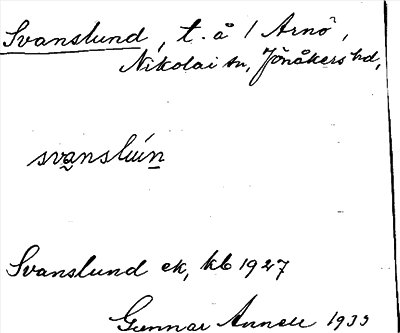 Svanslund, t. å / Arnö,
Nikolai sn, Jönåkers hd,
svansluin
Svanslund ek, kb 1927
Gunnar Annell 1933